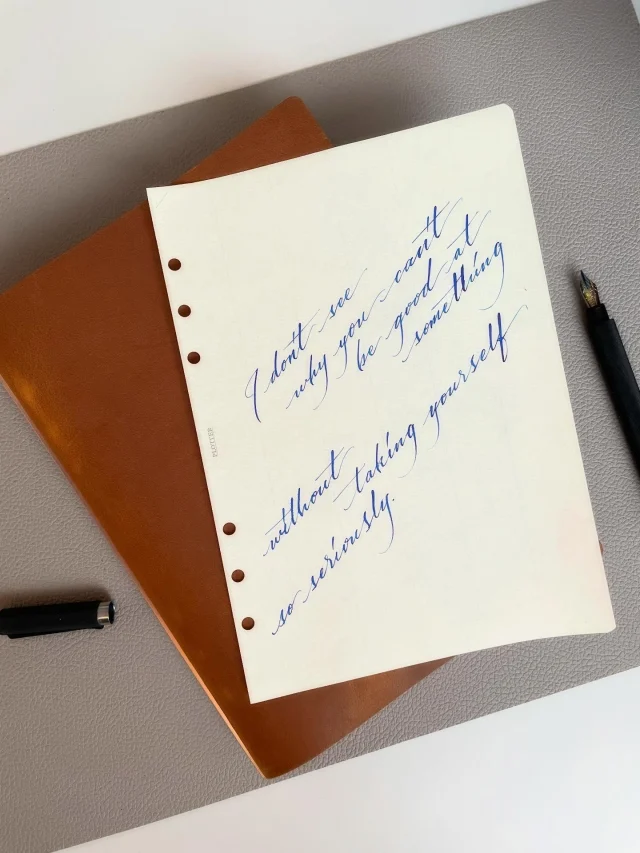 I don't see
why you can't
be good at
something
without
taking yourself
so seriously.
PLOTTER